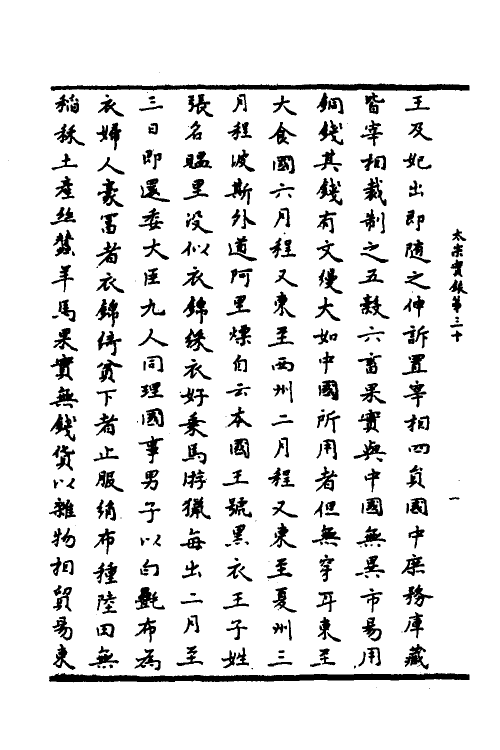 太宗實錄第三十
一
王及妃出即隨之伸訴置宰相四員國中庶務庫藏
皆宰相裁制之五穀六畜果實與中國無異市易用
銅錢其錢有文縵大如中國所用者但無穿耳東至
大食國六月程又東至西州二月程又東至夏州三
月程波斯外道阿里煙自云本國王號黑衣王子姓
張名哩里没似衣錦綵衣好乗馬游獵每出二月至
三日即還委大臣九人同理國事男子以白㲲布為
衣婦人豪冨者衣錦綺貧下者止服絹布種陸田無
稻秫土產絲蠶羊馬果實無錢貨以雜物相貿易東